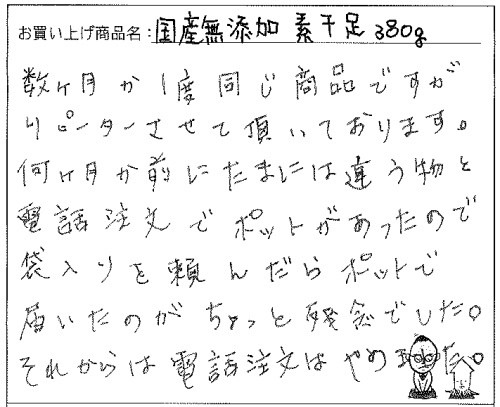 お買い上げ商品名：国産無添加 素干足 380g
数ヶ月か1度同じ商品ですが
リピーターさせて頂いております。
何ヶ月か前にたまには違う物と
電話注文でポットがあったので
袋入りを頼んだらポットで
届いたのがちょっと残念でした。
それからは電話注文はやめました。